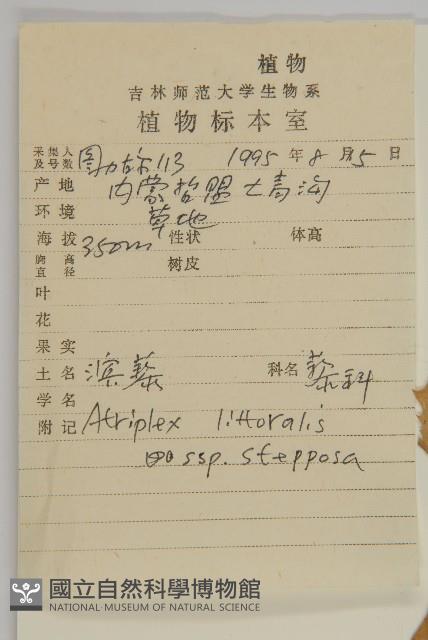 植物
吉林师范大学生物系
植物标本室
采集人及号数 图力古尔 113 1995 年 8 月 5 日
产地 内蒙哲盟大青沟
环境 草地
海拔 350m 性状 体高
胸高直径 树皮
叶
花
果实
土名 滨藜 科名 藜科
学名
附记 Atriplex littoralis
ssp. stepposa
國立自然科學博物館
NATIONAL MUSEUM OF NATURAL SCIENCE